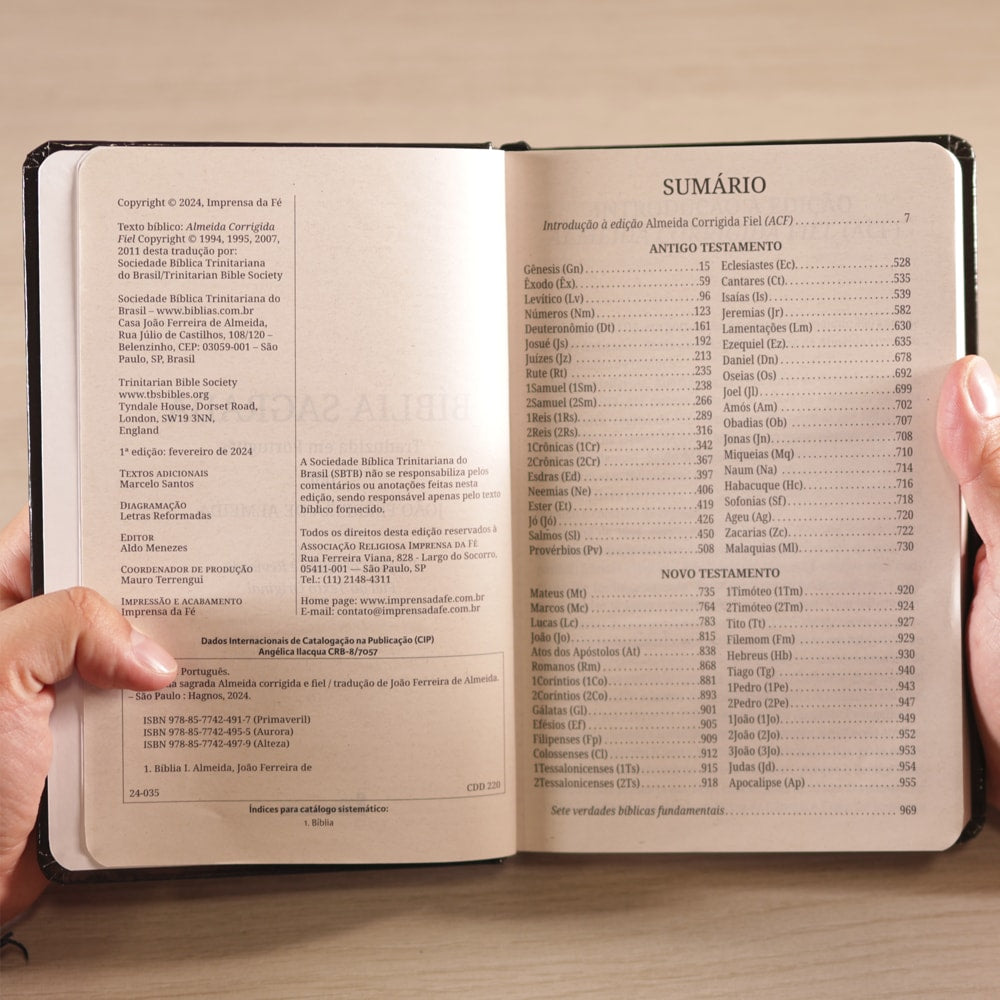 Copyright © 2024, Imprensa da Fé
Texto bíblico: Almeida Corrigida
Fiel Copyright © 1994, 1995, 2007,
2011 desta tradução por:
Sociedade Bíblica Trinitariana
do Brasil/Trinitarian Bible Society
Sociedade Bíblica Trinitariana do
Brasil – www.biblias.com.br
Casa João Ferreira de Almeida,
Rua Júlio de Castilhos, 108/120 –
Belenzinho, CEP: 03059-001 – São
Paulo, SP, Brasil
Trinitarian Bible Society
www.tbsbibles.org
Tyndale House, Dorset Road,
London, SW19 3NN,
England
1ª edição: fevereiro de 2024
TEXTOS ADICIONAIS
Marcelo Santos
DIAGRAMAÇÃO
Letras Reformadas
EDITOR
Aldo Menezes
COORDENADOR DE PRODUÇÃO
Mauro Terrengui
IMPRESSÃO E ACABAMENTO
Imprensa da Fé
A Sociedade Bíblica Trinitariana do
Brasil (SBTB) não se responsabiliza pelos
comentários ou anotações feitas nesta
edição, sendo responsável apenas pelo texto
bíblico fornecido.
Todos os direitos desta edição reservados à
ASSOCIAÇÃO RELIGIOSA IMPRENSA DA FÉ
Rua Ferreira Viana, 828 - Largo do Socorro,
05411-001 — São Paulo, SP
Tel.: (11) 2148-4311
Home page: www.imprensadafe.com.br
E-mail: contato@imprensadafe.com.br
Dados Internacionais de Catalogação na Publicação (CIP)
Angélica Ilacqua CRB-8/7057
Português.
sagrada Almeida corrigida e fiel / tradução de João Ferreira de Almeida.
– São Paulo : Hagnos, 2024.
ISBN 978-85-7742-491-7 (Primaveril)
ISBN 978-85-7742-495-5 (Aurora)
ISBN 978-85-7742-497-9 (Alteza)
1. Bíblia I. Almeida, João Ferreira de
24-035 CDD 220
Índices para catálogo sistemático:
1. Bíblia
SUMÁRIO
Introdução à edição Almeida Corrigida Fiel (ACF) 7
ANTIGO TESTAMENTO
Gênesis (Gn) 15
Êxodo (Êx) 59
Levítico (Lv) 96
Números (Nm) 123
Deuteronômio (Dt) 161
Josué (Js) 192
Juízes (Jz) 213
Rute (Rt) 235
1Samuel (1Sm) 238
2Samuel (2Sm) 266
1Reis (1Rs) 289
2Reis (2Rs) 316
1Crônicas (1Cr) 342
2Crônicas (2Cr) 367
Esdras (Ed) 397
Neemias (Ne) 406
Ester (Et) 419
Jó (Jó) 426
Salmos (Sl) 450
Provérbios (Pv) 508
Eclesiastes (Ec) 528
Cantares (Ct) 535
Isaías (Is) 539
Jeremias (Jr) 582
Lamentações (Lm) 630
Ezequiel (Ez) 635
Daniel (Dn) 678
Oseias (Os) 692
Joel (Jl) 699
Amós (Am) 702
Obadias (Ob) 707
Jonas (Jn) 708
Miqueias (Mq) 710
Naum (Na) 714
Habacuque (Hc) 716
Sofonias (Sf) 718
Ageu (Ag) 720
Zacarias (Zc) 722
Malaquias (Ml) 730
NOVO TESTAMENTO
Mateus (Mt) 735
Marcos (Mc) 764
Lucas (Lc) 783
João (Jo) 815
Atos dos Apóstolos (At) 838
Romanos (Rm) 868
1Coríntios (1Co) 881
2Coríntios (2Co) 893
Gálatas (Gl) 901
Efésios (Ef) 905
Filipenses (Fp) 909
Colossenses (Cl) 912
1Tessalonicenses (1Ts) 915
2Tessalonicenses (2Ts) 918
1Timóteo (1Tm) 920
2Timóteo (2Tm) 924
Tito (Tt) 927
Filemom (Fm) 929
Hebreus (Hb) 930
Tiago (Tg) 940
1Pedro (1Pe) 943
2Pedro (2Pe) 947
1João (1Jo) 949
2João (2Jo) 952
3João (3Jo) 953
Judas (Jd) 954
Apocalipse (Ap) 955
Sete verdades bíblicas fundamentais 969